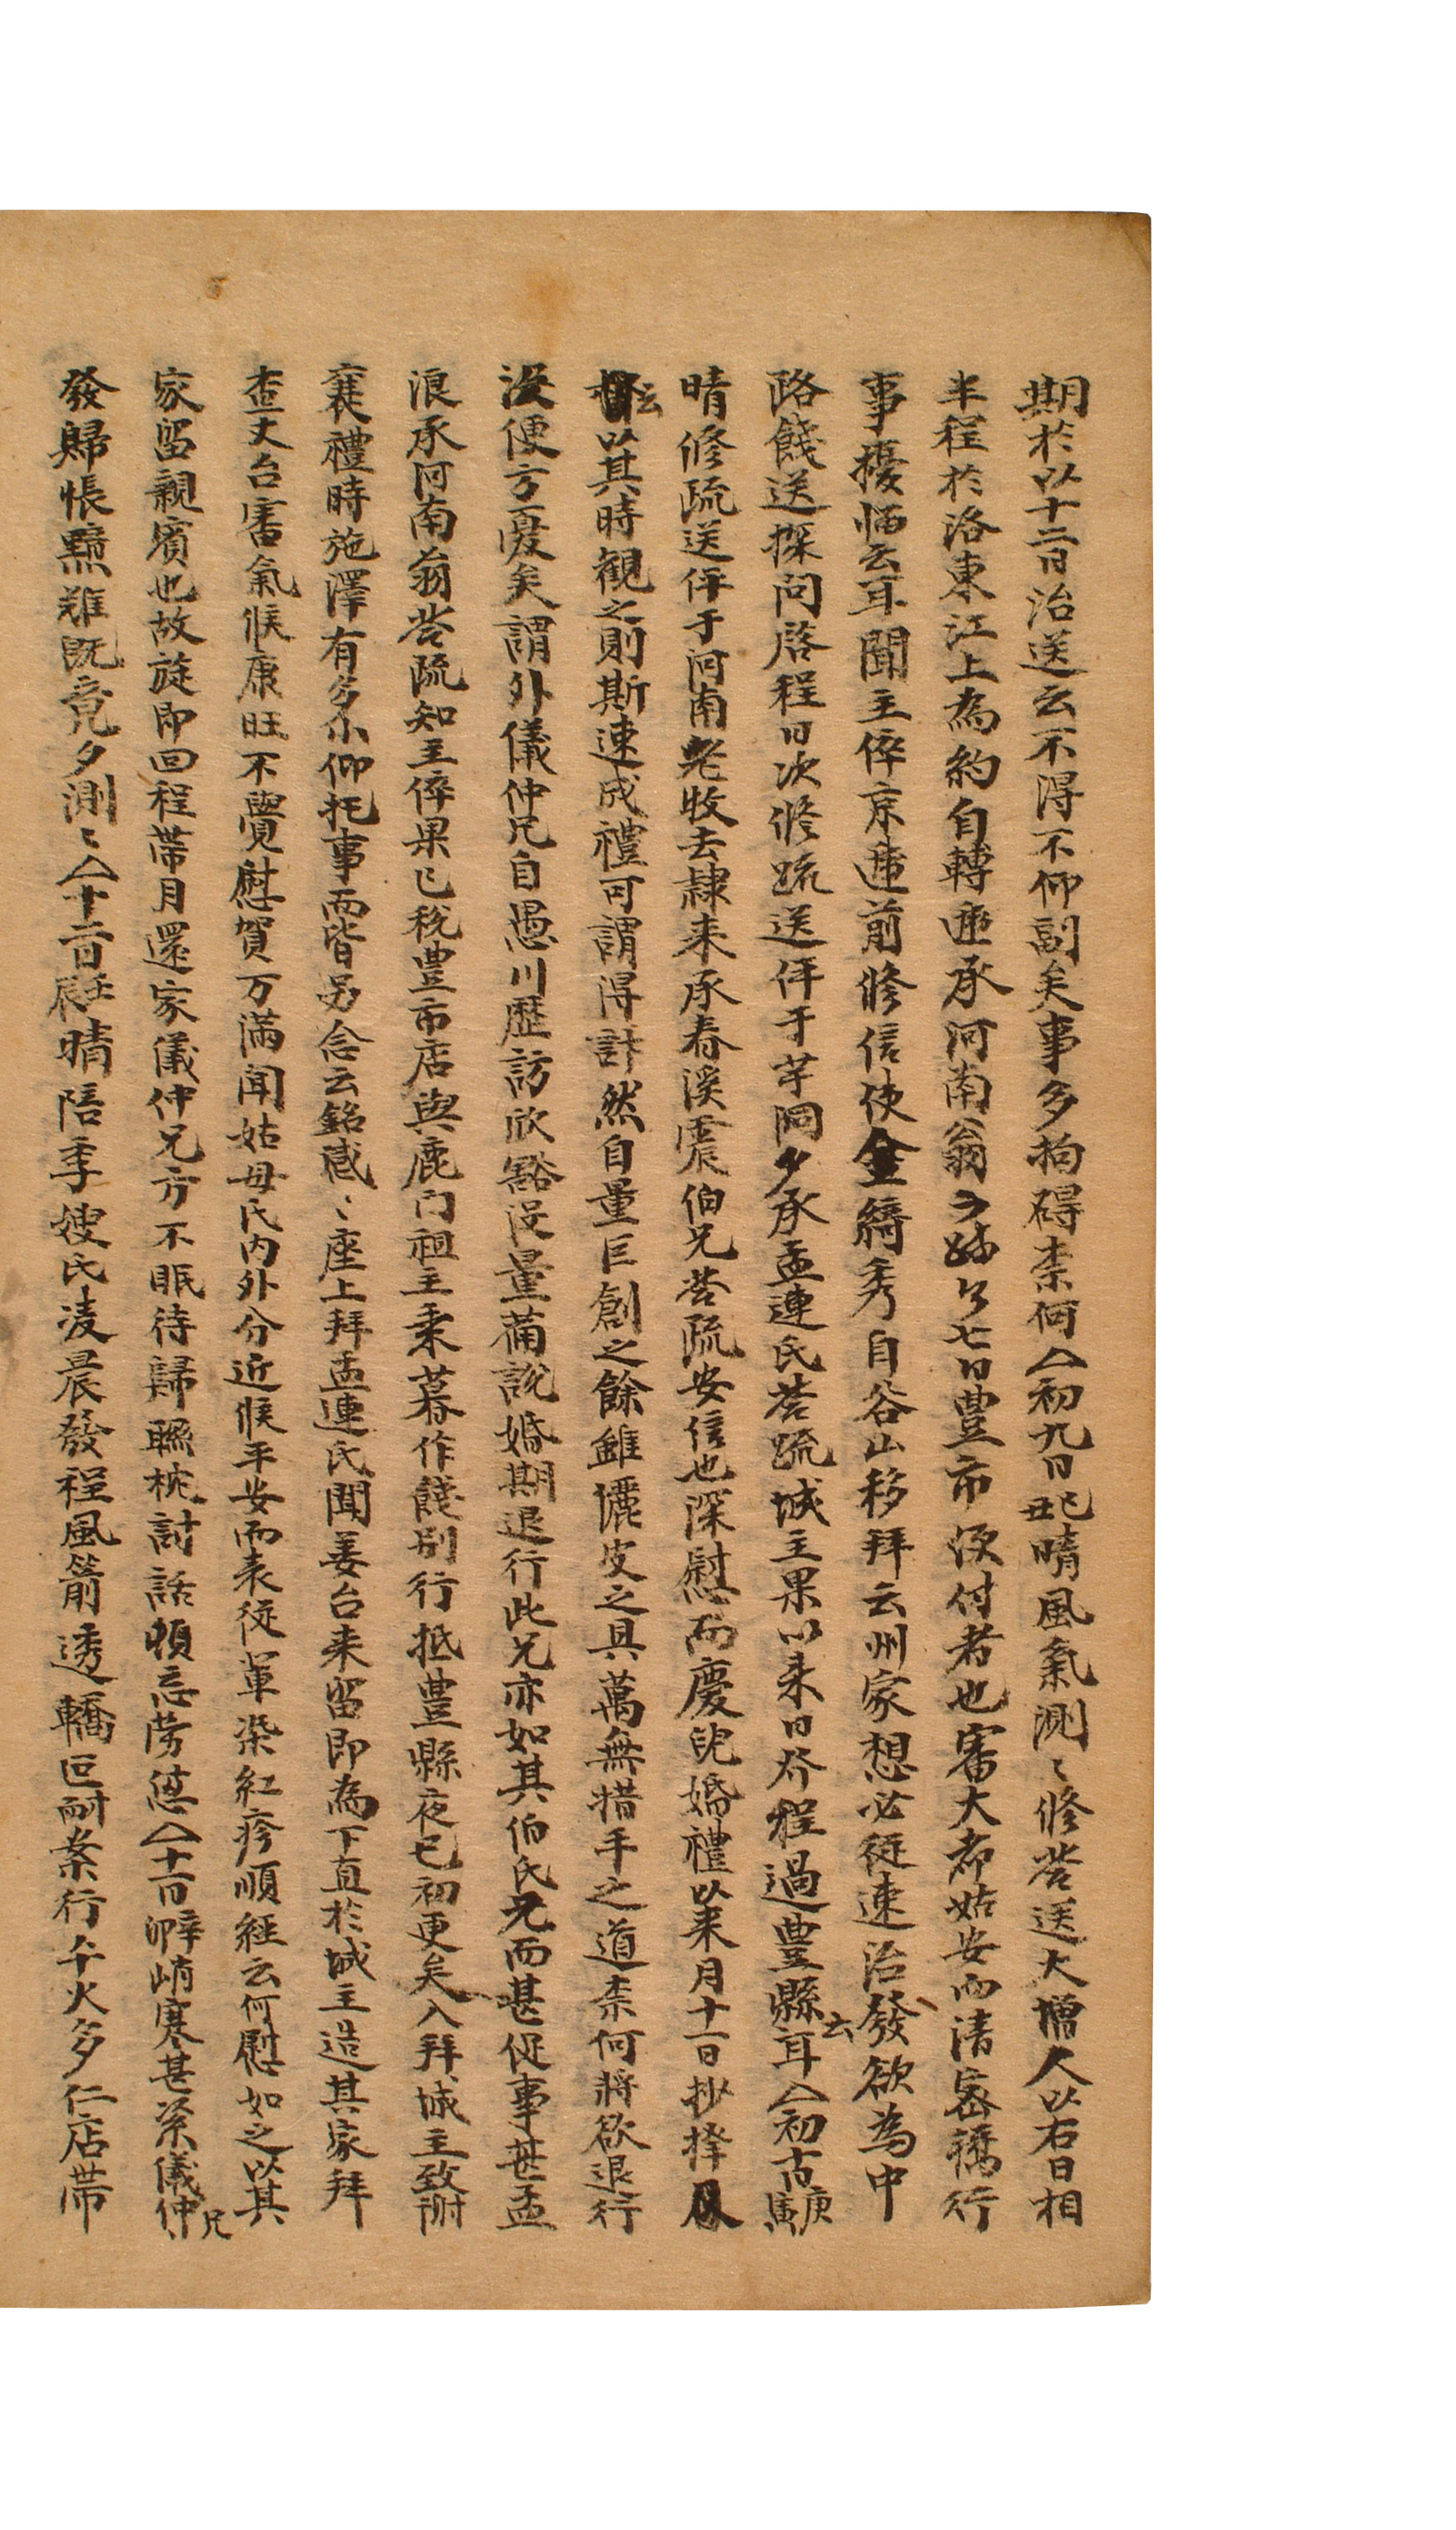 期於以十二日治送云不得不仰副矣事多拘碍柰何△初九日己丑晴風氣測〻修答送大增人以右日相
半程於洛東江上為約自轉遞承河南翁七日豊市便付者也審大都姑安而清密穚行
事擾惱云耳聞主倅京遞前修信使金綺秀自谷山移拜云州家想必從速治發欲為中
路餞送探問啓程日次修疏送伻于芋洞夕承孟連氏答疏城主果以来日發程過豊縣云耳△初十日庚寅
晴修疏送伻于河南老牧去隷来承春溪震伯兄答疏安信也深慰而慶兒婚禮以来月十一日抄擇
云以其時観之則斯速成禮可謂得計然自量巨創之餘雖儷皮之具萬無措手之道柰何將欲退行
没便方憂矣謂外儀仲兄自愚川歷訪欣豁没量備說婚期退行此兄亦如其伯氏兄而甚促事甚孟
浪承河南翁答疏知主倅果已稅豊市店與鹿门祖主乘暮作餞別行抵豊縣夜已初更矣入拜城主致謝
襄禮時施澤有多小仰托事而皆另念云銘感〻座上拜孟連氏聞姜台来留即為下直於城主造其家拜
查丈台審氣候康旺不覺慰賀万滿闻姑母氏内外分近候平安而表從軍染紅疹順経云何慰如之以其
家留親賓也故旋即回程帶月還家儀仲兄方不眠待歸聮枕討話頓忘勞憊△十一日辛卯峭寒甚緊儀仲兄
發歸悵黯難既竟夕測〻△十二日壬辰晴陪季嫂氏凌晨發程風箭透轎叵耐柰行午火多仁店帶